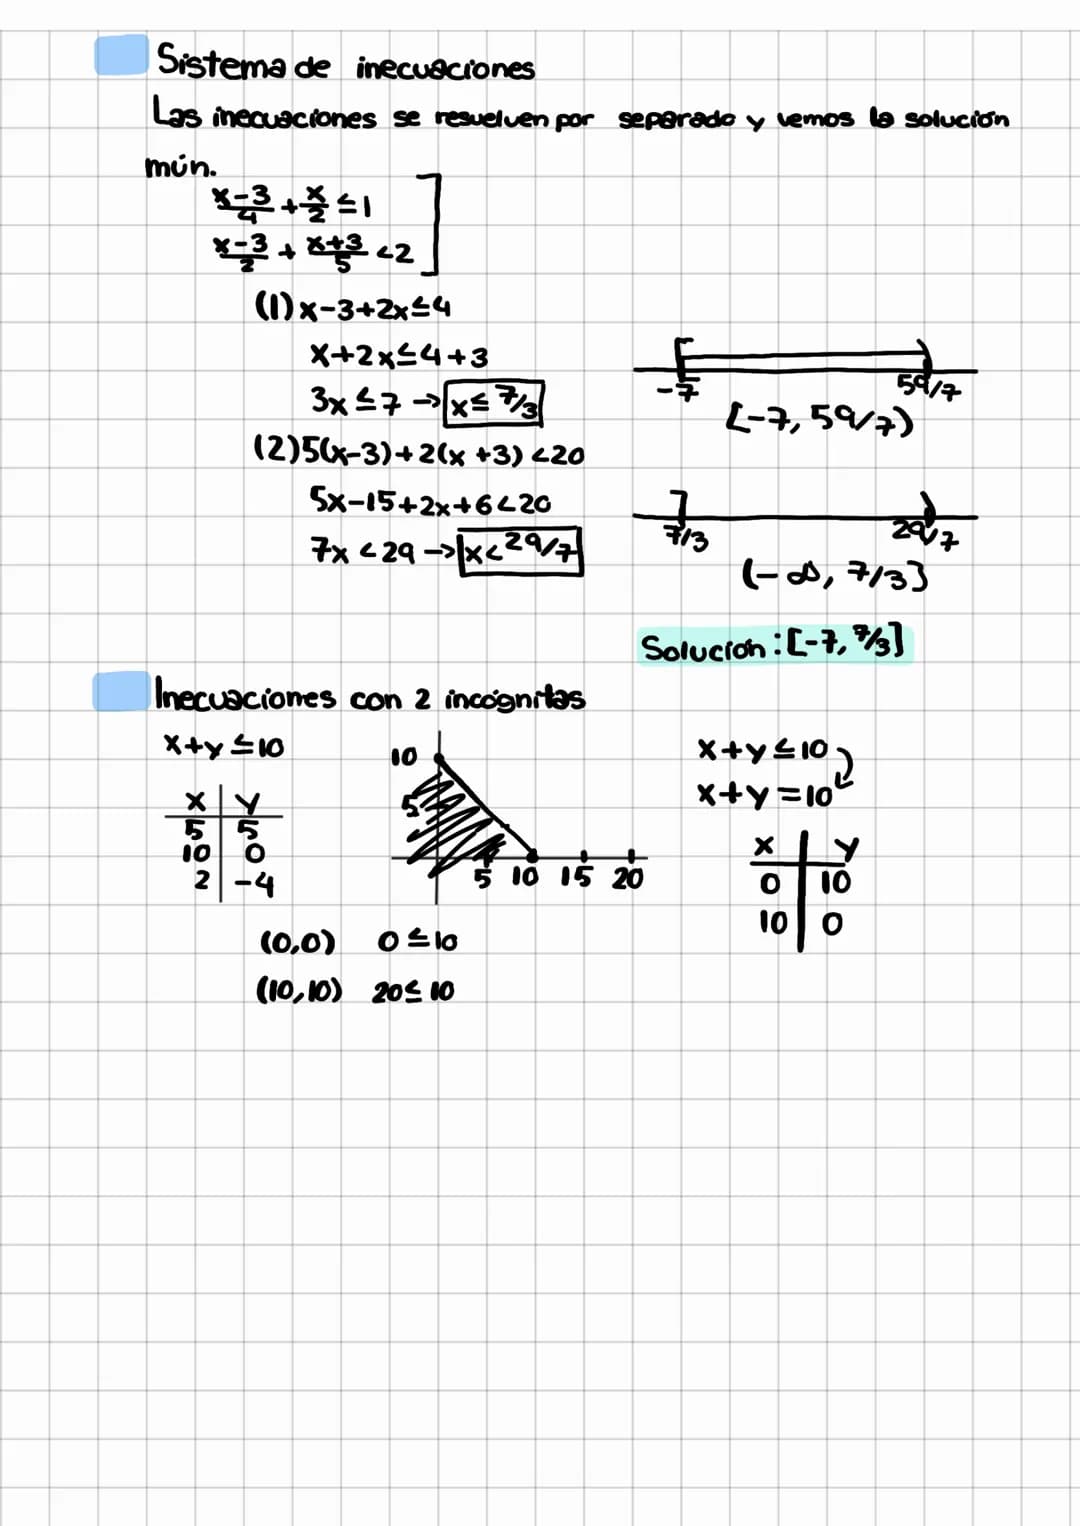 Sistema de inecuaciones
Las inecuaciones se resuelven por separado y vemos la solución
mún.
x-3/4 + x/2 ≤ 1
x-3/2 + x+3/5 < 2
(1) x-3+2x≤4
x+2x≤4+3
3x ≤ 7 → x≤ 7/3
(2) 5(x-3)+2(x+3) <20
5x-15+2x+6<20
7x < 29 → x< 29/7
-7 59/7
[-7, 59/7)
7/3 29/7
(-∞, 7/3]
Solución: [-7, 7/3]
Inecuaciones con 2 incógnitas
x+y ≤10
x y
5 5
10 0
2 -4
10
5
5 10 15 20
x+y≤10
x+y=10
x y
0 10
10 0
(0,0) 0≤10
(10,10) 20≤10